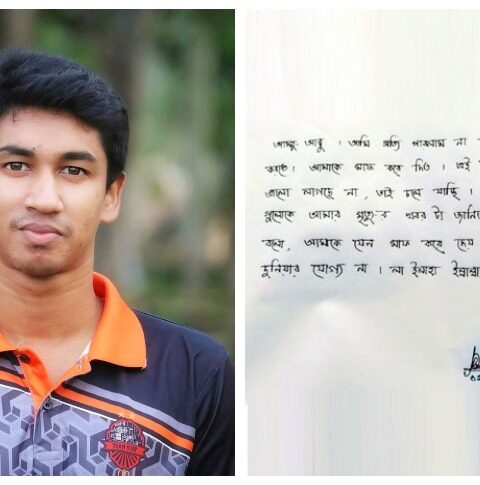 আম্মু আব্বু । আমি সত্যি পারলাম না
করতে । আমাকে মাফ করে দিও । এই
ভালো লাগছে না , তাই চলে যাচ্ছি ।
আমার মৃত্যুর খবর টা জানিয়ে
বলো , আমাকে যেন মাফ করে দেয়
দুনিয়ার যোগ্য না । লা ইলাহা
TEAM